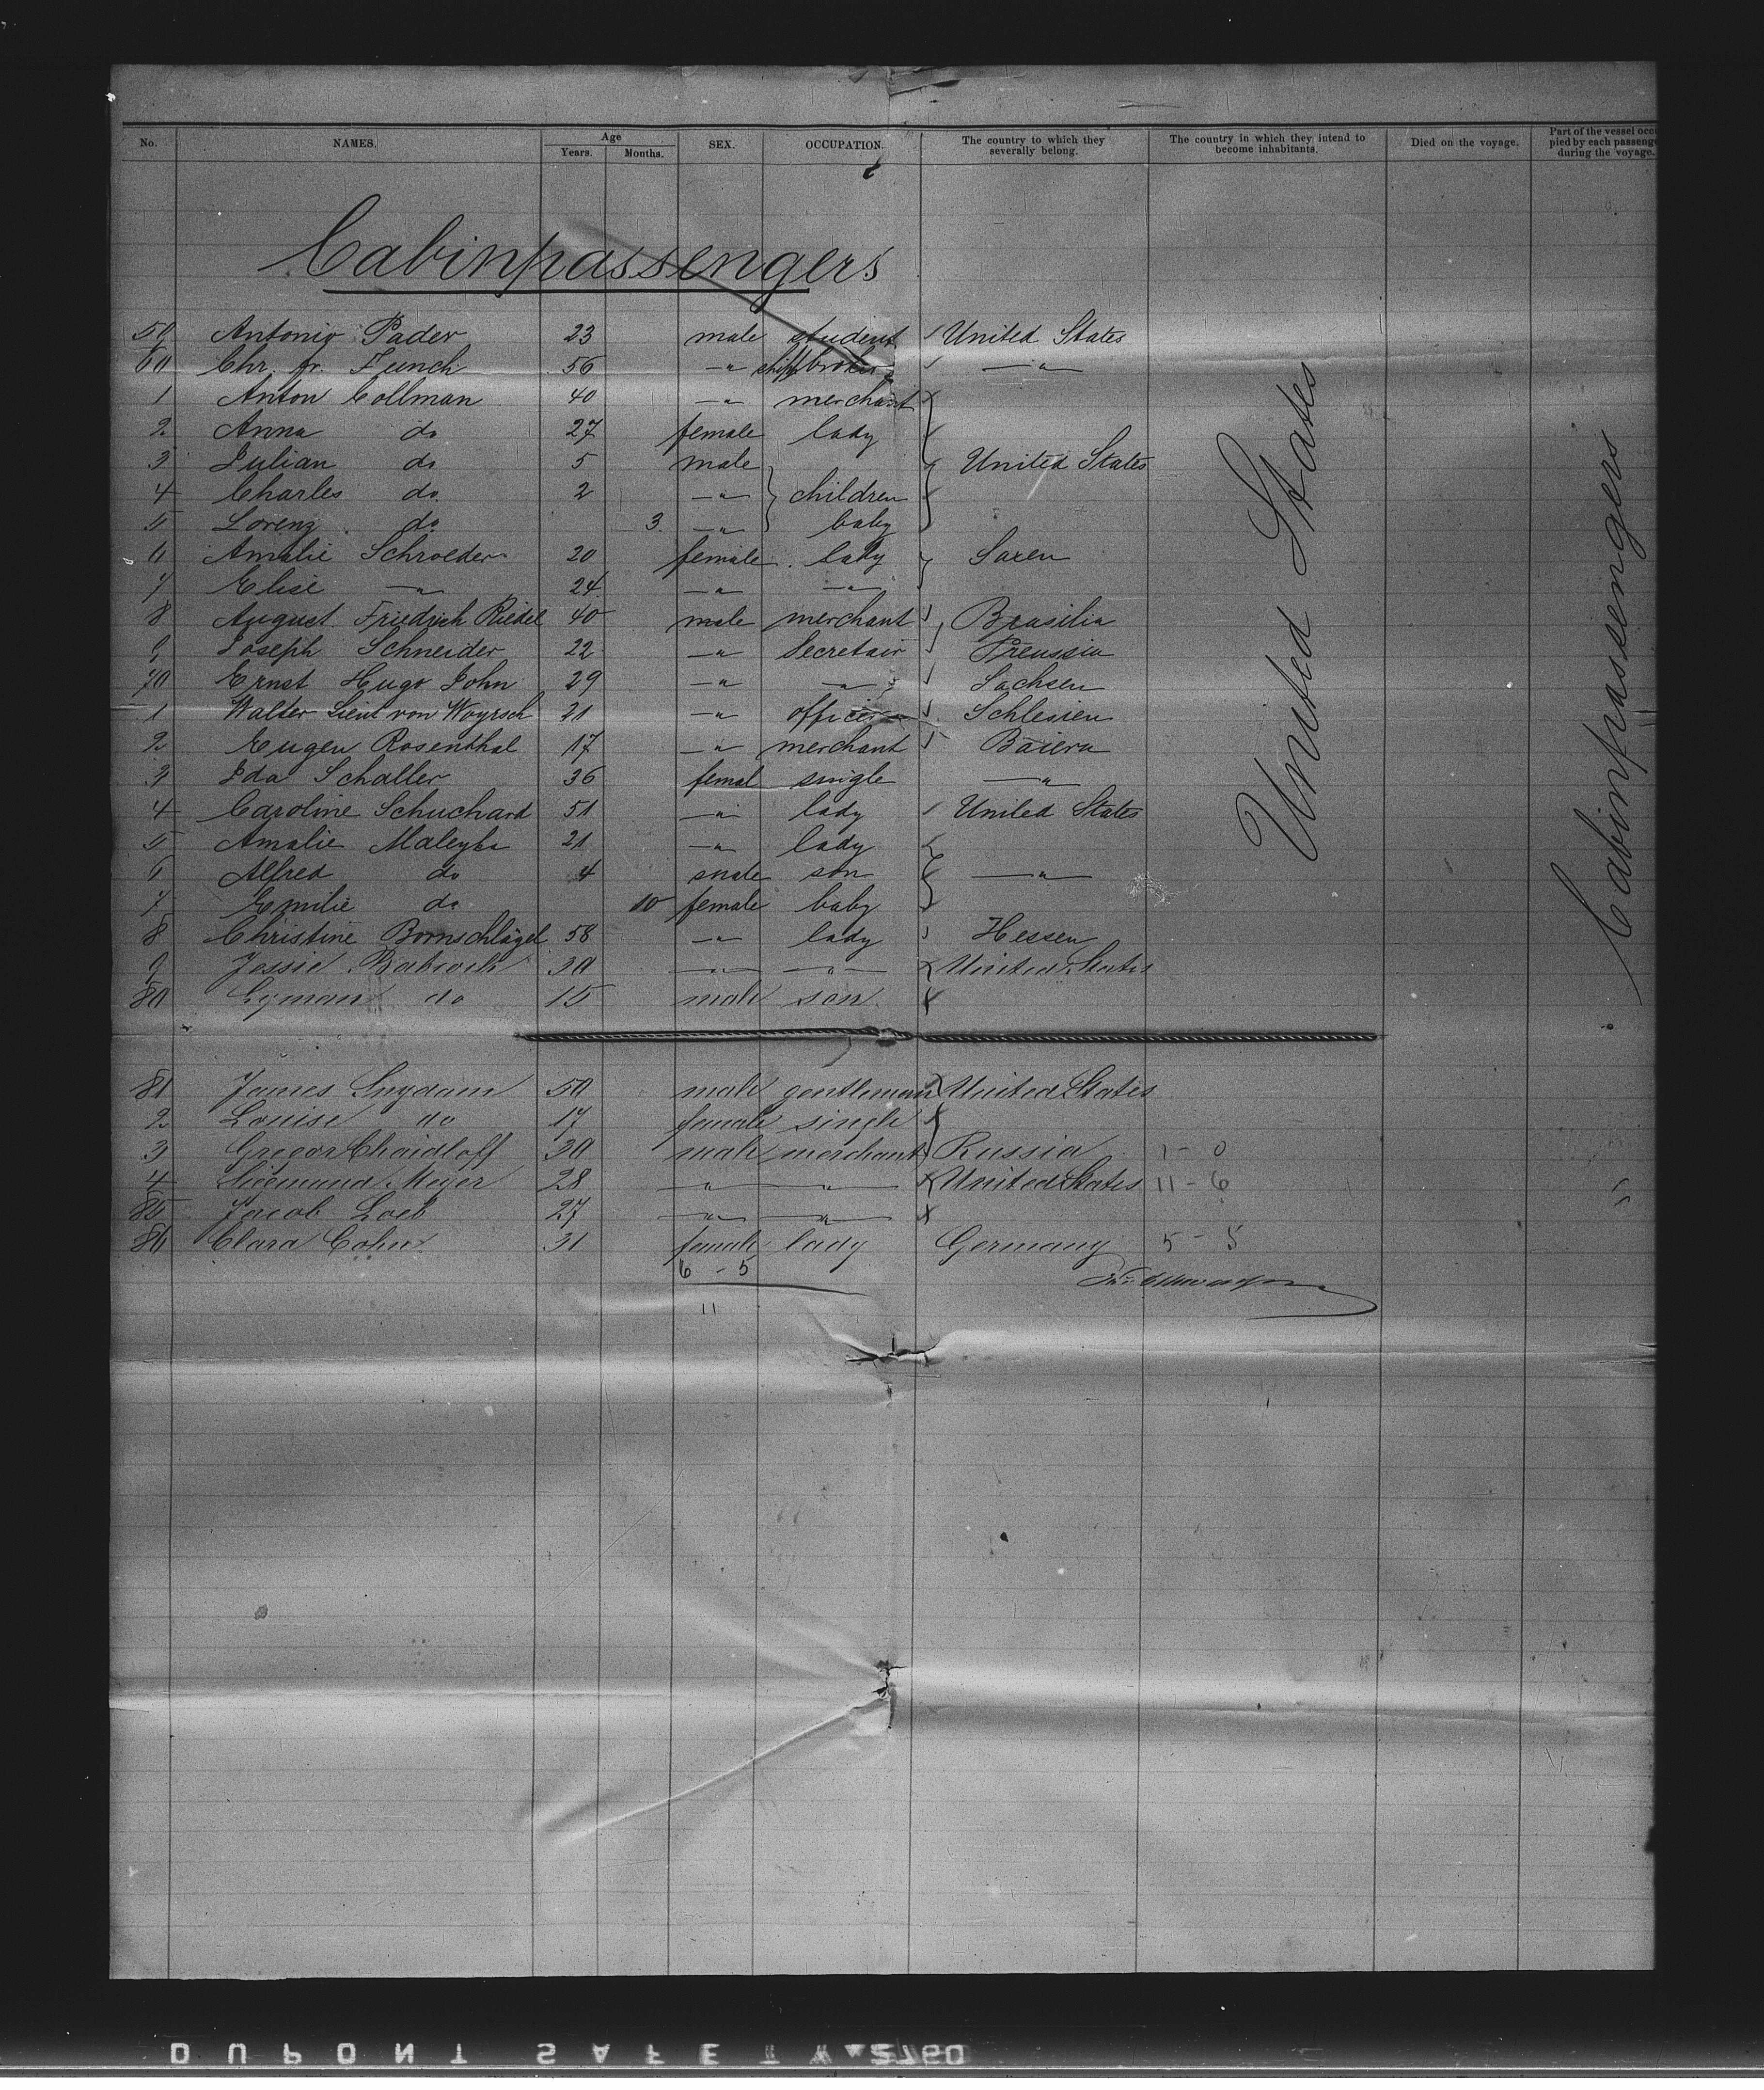 No. NAMES. Age Years. Months. SEX. OCCUPATION. The country to which they severally belong. The country in which they intend to become inhabitants. Died on the voyage. Part of the vessel occu pied by each passenge during the voyage.
Cabinpassengers
59 Antonio Pader 23 male student United States
60 Chr. Fr. Funch 56 —"— shipbroker —"—
1 Anton Collman 40 —"— merchant
2 Anna do 27 female lady
3 Julian do 5 male United States
4 Charles do 2 —"— children
5 Lorenz do 3 —"— baby
6 Amalie Schroeder 20 female lady Saxen
7 Elise —"— 24 —"— —"—
8 August Friedrich Riedel 40 male merchant Brasilia
9 Joseph Schneider 22 —"— Secretair Preussia
70 Ernst Hugo John 29 —"— —"— Sachsen
1 Walter Lieut von Woyrsch 21 —"— officer Schlesien
2 Eugen Rosenthal 17 —"— merchant Baiern
3 Ida Schaller 36 femal single —"—
4 Caroline Schuchard 51 —"— lady United States
5 Amalie 21 —"— lady
6 Alfred do 4 male son —"—
7 Emilie do 10 female baby
8 Christine Bornschlägel 58 —"— lady Hessen
9 Jessie Babcock 30 —"— —"— United States
80 Lyman do 15 male son
81 James Suydam 50 male gentleman United States
2 Louise do 17 female single
3 Gregor Chaidloff 30 male merchant Russia 1 - 0
4 Siegmund Meyer 28 —"— —"— United States 11 - 6
85 Jacob Loeb 27 —"— —"—
86 Clara Cohn 31 female lady Germany 5 - 5
6 - 5
11
United States
Cabinpassengers
DUPONT SAFETY 2760